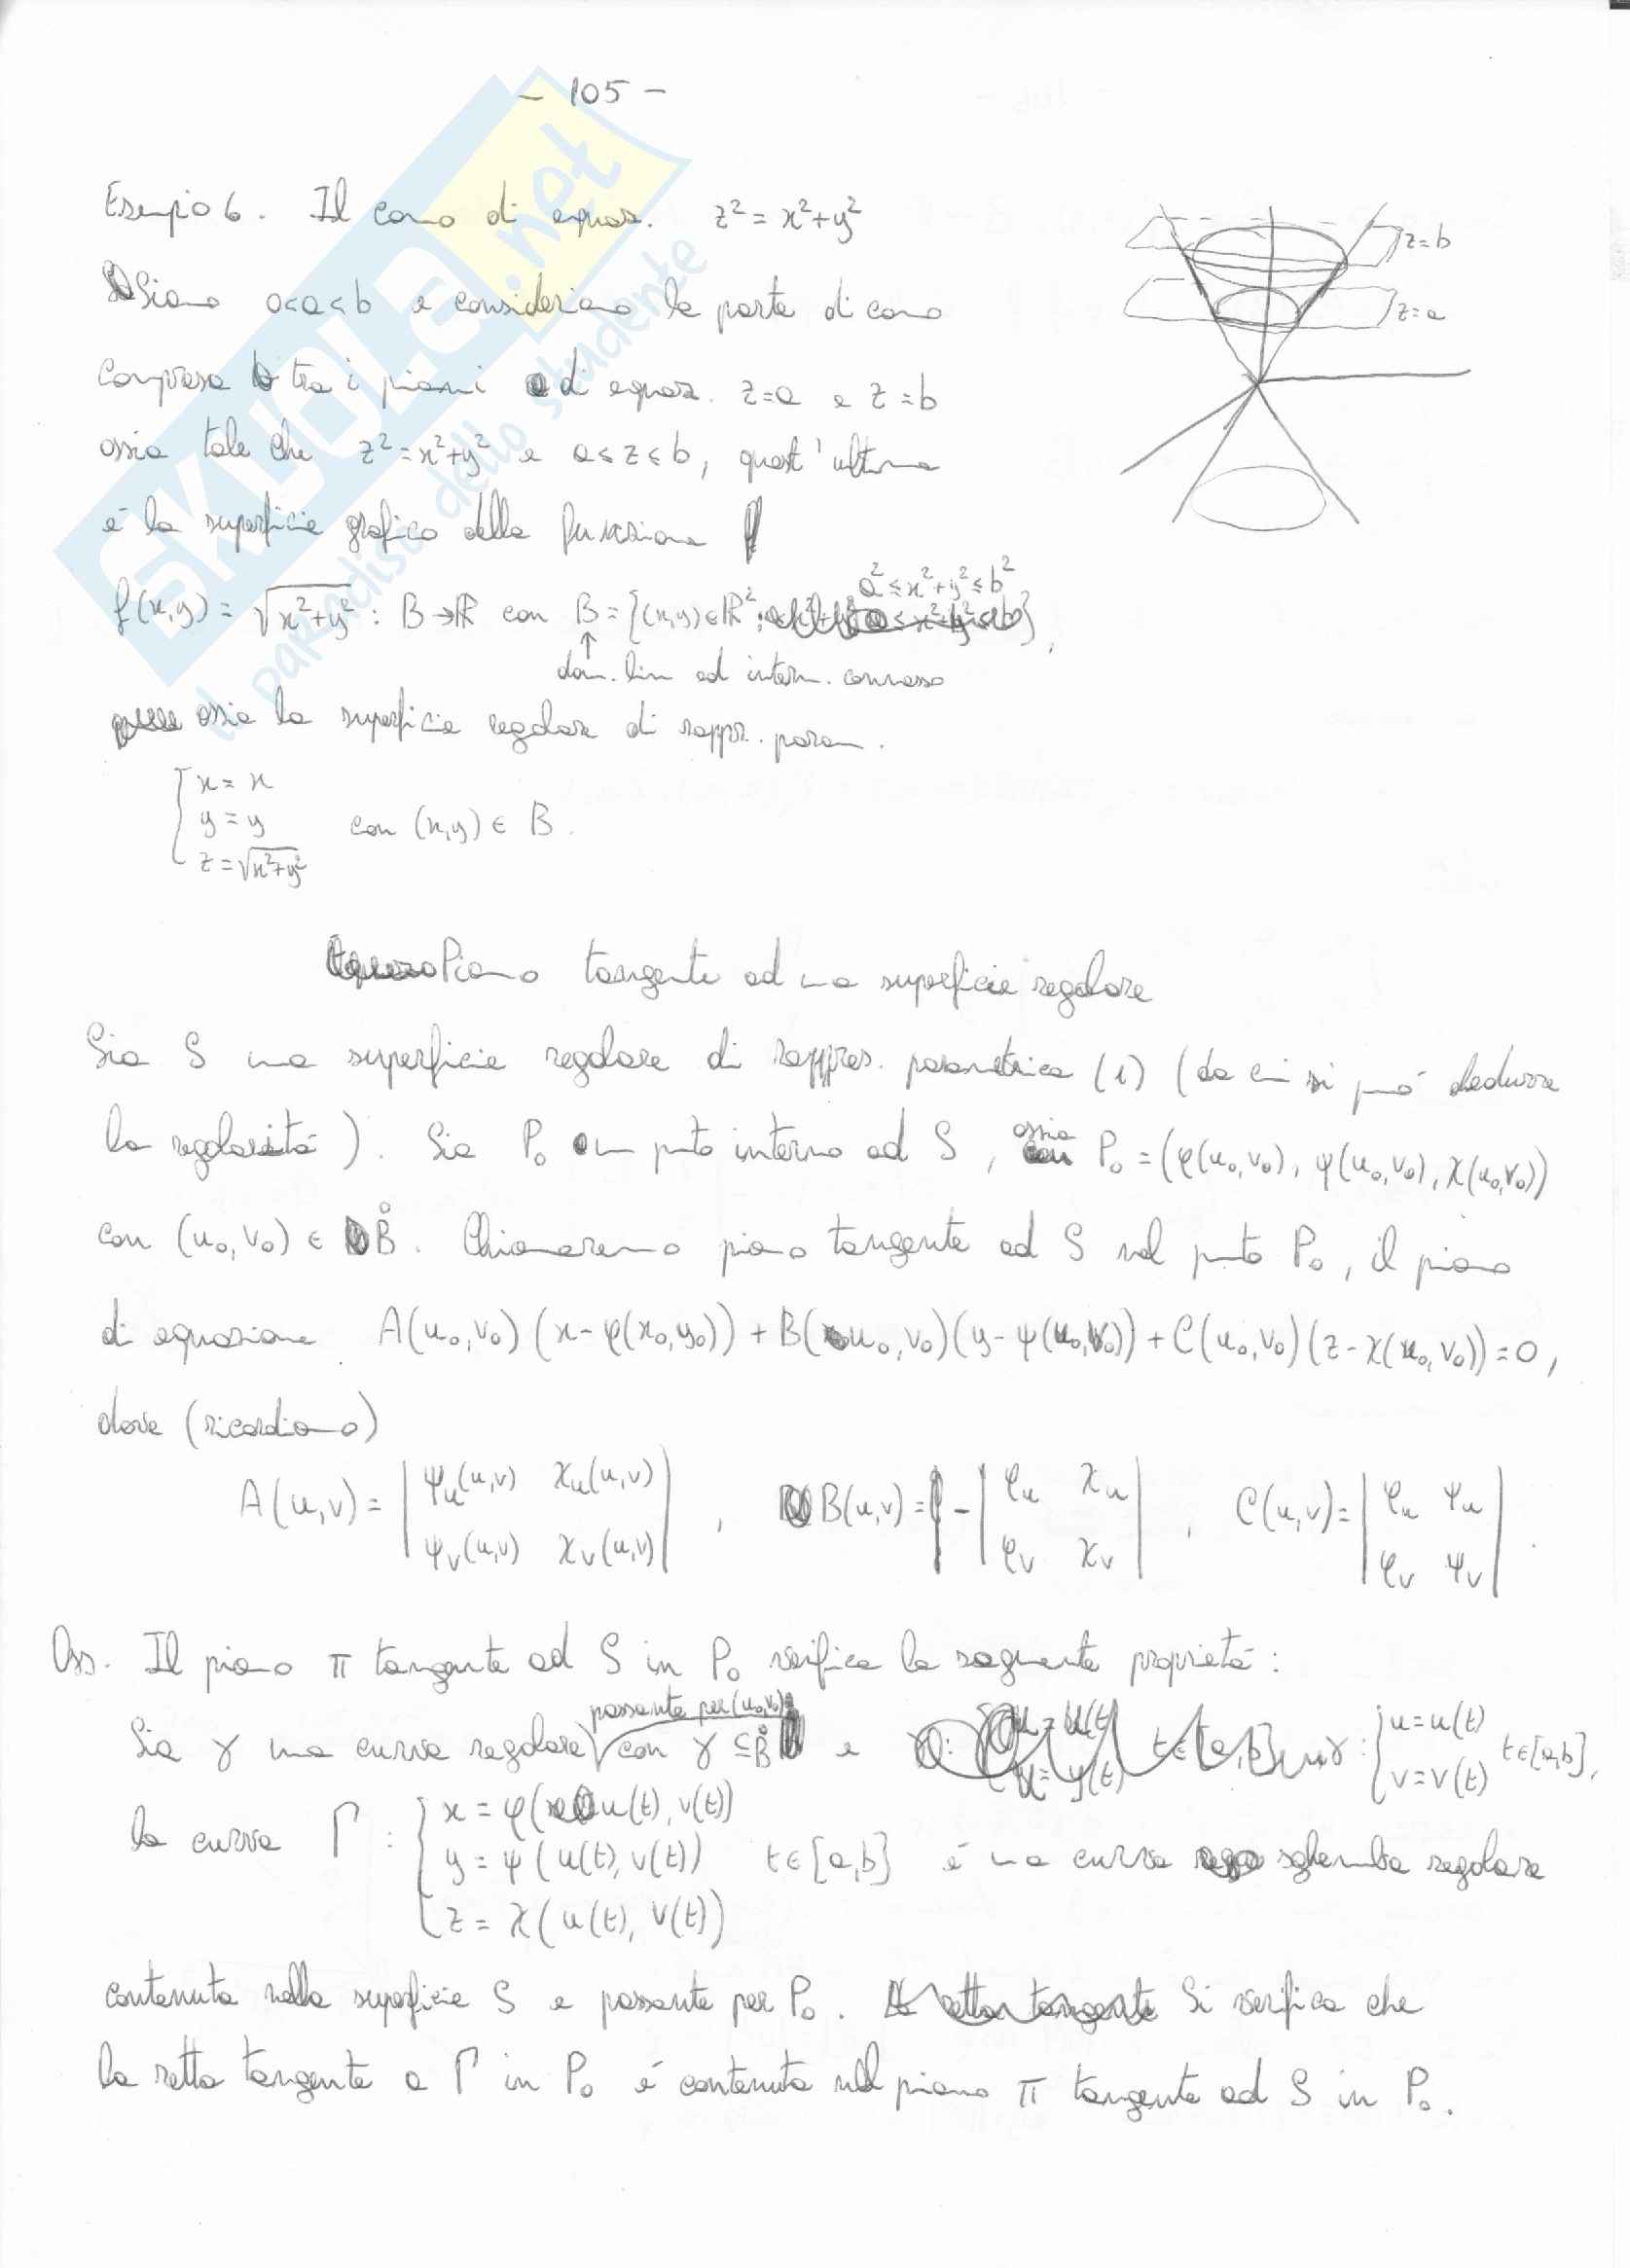 - 105 -
Esempio 6. Il cono di equaz. z² = x²+y²
Siano 0<a<b e consideriamo la parte di cono
compresa tra i piani di equaz. z=a e z=b
ossia tale che z²=x²+y² e a≤z≤b, quest'ultima
è la superficie grafico della funzione
f(x,y) = √(x²+y²) : B→ℝ con B = {(x,y)∈ℝ²: a²≤x²+y²≤b²},
↑
dom. lim ad intern. connesso
ossia la superficie regolare di rappr. param.
{ x = x
y = y con (x,y) ∈ B.
z = √(x²+y²)
z=b
z=a
Piano tangente ad una superficie regolare
Sia S una superficie regolare di rappres. parametrica (1) (da cui si può dedurre
la regolarità). Sia P₀ un punto interno ad S, ossia P₀ = (φ(u₀,v₀), ψ(u₀,v₀), χ(u₀,v₀))
con (u₀,v₀) ∈ B̊. Chiameremo piano tangente ad S nel punto P₀, il piano
di equazione A(u₀,v₀)(x-φ(x₀,y₀)) + B(u₀,v₀)(y-ψ(u₀,v₀)) + C(u₀,v₀)(z-χ(u₀,v₀)) = 0,
dove (ricordiamo)
A(u,v) = | ψᵤ(u,v) χᵤ(u,v) | , B(u,v) = - | φᵤ χᵤ | , C(u,v) = | φᵤ ψᵤ | .
| ψᵥ(u,v) χᵥ(u,v) | | φᵥ χᵥ | | φᵥ ψᵥ |
Oss. Il piano π tangente ad S in P₀ verifica la seguente proprietà:
Sia γ una curva regolare passante per (u₀,v₀) con γ ⊆ B̊ e γ: { u = u(t)
v = v(t) t∈[a,b],
la curva Γ : { x = φ(u(t), v(t))
y = ψ(u(t), v(t)) t∈[a,b] è una curva sghemba regolare
z = χ(u(t), v(t))
contenuta nella superficie S e passante per P₀. Si verifica che
la retta tangente a Γ in P₀ è contenuta nel piano π tangente ad S in P₀.
SKUOLA.net
il paradiso dello studente